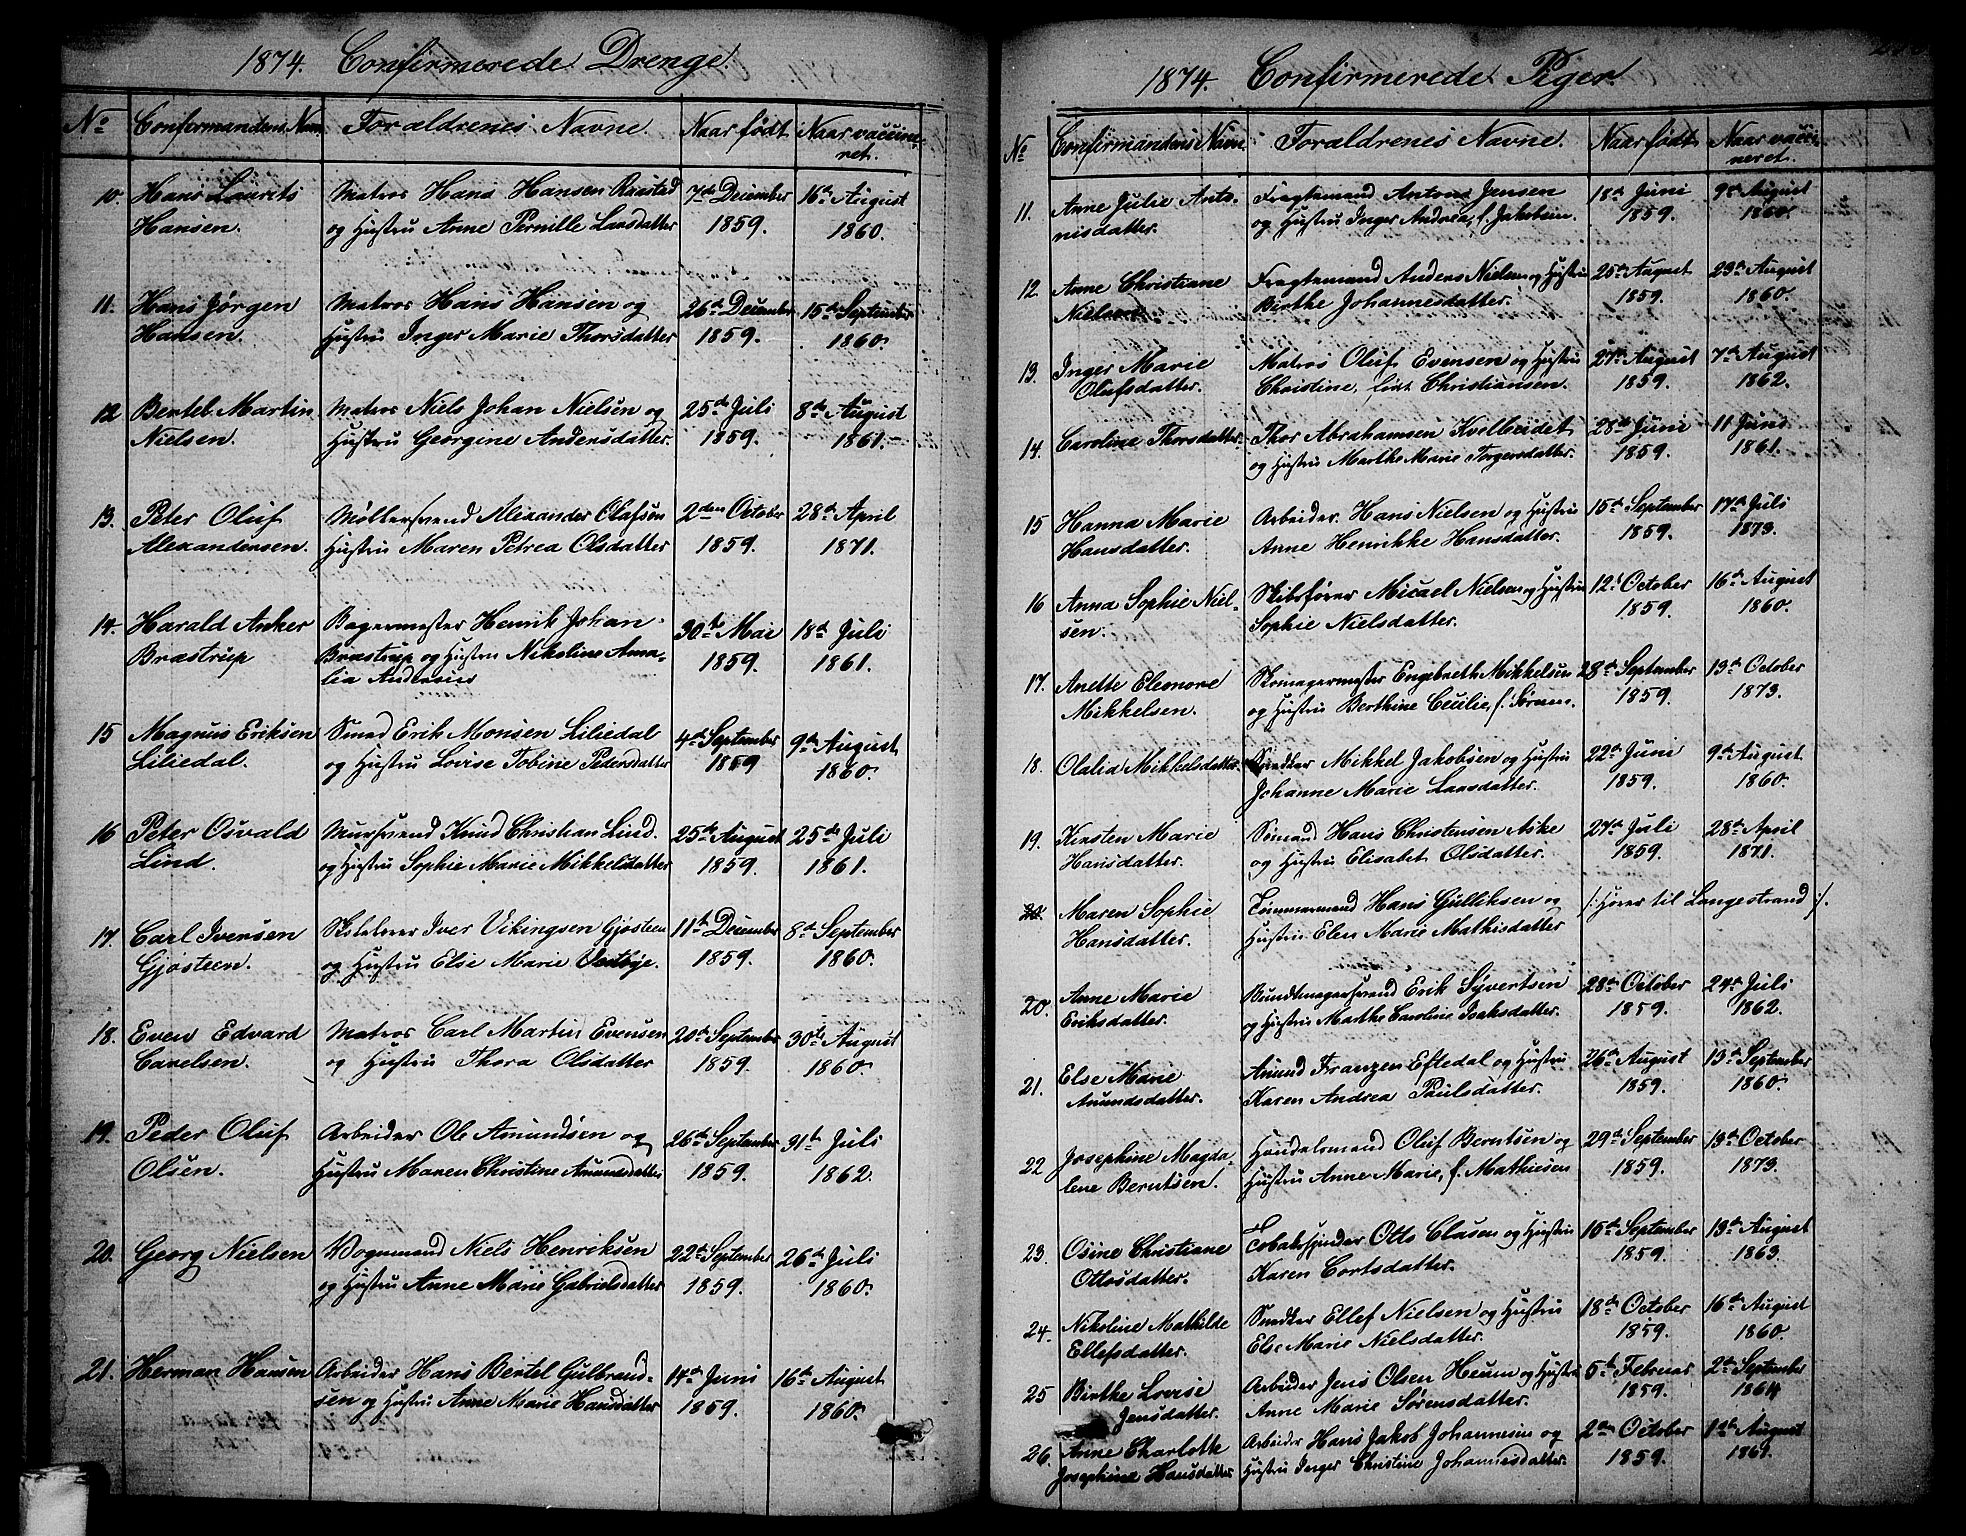 1874. Confirmerede Drenge.
No Confirmandens Navn Forældrenes Navne. Naar født Naar vaccine-
ret.
10. Hans Laurits Matros Hans Hansen Raastad 7de December 16de August
Hansen. og Hustru Anne Pernille Larsdatter 1859. 1860.
11. Hans Jørgen Matros Hans Hansen og 26de December 15de September
Hansen. Hustru Inger Marie Thorsdatter 1859. 1860.
12 Bertel Martin Matros Niels Johan Nielsen og 25de Juli 8de August
Nielsen. Hustru Georgine Andersdatter. 1859. 1861.
13. Peter Oluf Møllersvend Alexander Olafsen 2den October 28de April
Alexandersen. Hustru Maren Petrea Olsdatter 1859. 1871.
14. Harald Anker Bagermester Henrik Johan 30te Mai 18de Juli
Bræstrup Bræstrup og Hustru Nikoline Ama- 1859. 1861.
lia Andersen
15 Magnus Eriksen Smed Erik Monsen Liliedal 4de September 9de August
Liliedal. og Hustru Lovise Tobine Pedersdatter 1859 1860.
16 Peter Osvald Mursvend Knud Christian Lind. 25de August 25de Juli
Lind. og Hustru Sophie Marie Mikkelsdatter 1859. 1861.
17. Carl Iversen Iver Vikingsen Gjøsteen 11te December 8de September
Gjøsteen. og Hustru Else Marie 1859. 1860.
18. Even Edvard Matros Carl Martin Evensen 20de September 30te August
Carelsen. og Hustru Thora Olsdatter 1859. 1860.
19. Peder Oluf Arbeider Ole Amundsen og 26de September 31te Juli
Olsen. Hustru Maren Christine Amundsdatter 1859. 1862.
20. Georg Nielsen Vognmand Niels Henriksen 22de September 26de Juli
og Hustru Anne Marie Gabrielsdatter 1859. 1860.
21. Herman Hansen Arbeider Hans Bertel Gulbrand- 14de Juni 16de August
sen og Hustru Anne Marie Hansdatter 1859. 1860.
1874. Confirmerede Piger
No Confirmandens Navn Forældrenes Navne. Naar født Naar vacci-
neret.
11. Anne Julie Anto- Fragtemand Anton Jensen 18de Juni 9de August
nisdatter. og Hustru Inger Andrea, f. Jakobsen. 1859. 1860.
12. Anne Christiane Fragtemand Anders Nielsen og Hustru 25de August 29de August
Nielsen Birthe Johannesdatter. 1859. 1860.
13. Inger Marie Matros Oluf Evensen og Hustru 27de August 7de August
Olufsdatter. Christine, født Christiansen. 1859. 1862.
14. Caroline Thorsdatter. Thor Abrahamsen Kvelbeidet 28de Juni 11 Juni
og Hustru Marthe Marie Torgersdatter. 1859. 1861.
15 Hanna Marie Arbeider. Hans Nielsen og Hustru 15de September 17de Juli
Hansdatter. Anne Henrikke Hansdatter. 1859. 1873.
16 Anna Sophie Niel- Skibsfører Micael Nielsen og Hustru 12te October 16de August
sen. Sophie Nielsdatter. 1859. 1860.
17. Anette Eleonore Skomagermester Engebreth Mikkelsen 28de September 13de October
Mikkelsen. og Hustru Berthine Cecilie, f. Sørensen. 1859. 1873.
18. Olalia Mikkelsdatter. Mikkel Jakobsen og Hustru 22de Juni 9de August
Johanne Marie Larsdatter. 1859. 1860.
19. Kirsten Marie Sømand Hans Christensen Aske 27de Juli 28de April
Hansdatter. og Hustru Elisabet Olsdatter. 1859. 1871.
20. Maren Sophie Tømmermand Hans Gulliksen og /: Hører til Langestrand :/.
Hansdatter. Hustru Elen Marie Mathisdatter
20. Anne Marie Bundtmagersvend Erik Syvertsen 28de October 24de Juli
Eriksdatter. og Hustru Marthe Caroline Isaksdatter. 1859. 1862.
21. Else Marie Amund Franzen Eftedal og Hustru 26de August 13de September
Amundsdatter. Karen Andrea Paulsdatter. 1859. 1860.
22 Josephine Magda- Handelsmand Oluf Berntsen og 29de September 13de October
lene Berntsen. Hustru Anne Marie, f. Mathiesen 1859. 1873.
23. Osine Christiane Tobakspinder Otto Clasen og Hustru 15de September 13de August
Ottosdatter. Karen Cortsdatter. 1859. 1863.
24. Nikoline Mathilde Ellef Nielsen og Hustru 18de October 16de August
Ellefsdatter. Else Marie Nielsdatter. 1859. 1860.
25 Birthe Lovise Arbeider Jens Olsen Heum og Hustru 5te Februar 2de September
Jensdatter. Anne Marie Sørensdatter. 1859. 1864
26. Anne Charlotte Arbeider Hans Jakob Johannesen og 2den October 1ste August
Josephine Hansdatter Hustru Inger Christine Johannesdatter. 1859. 1861.